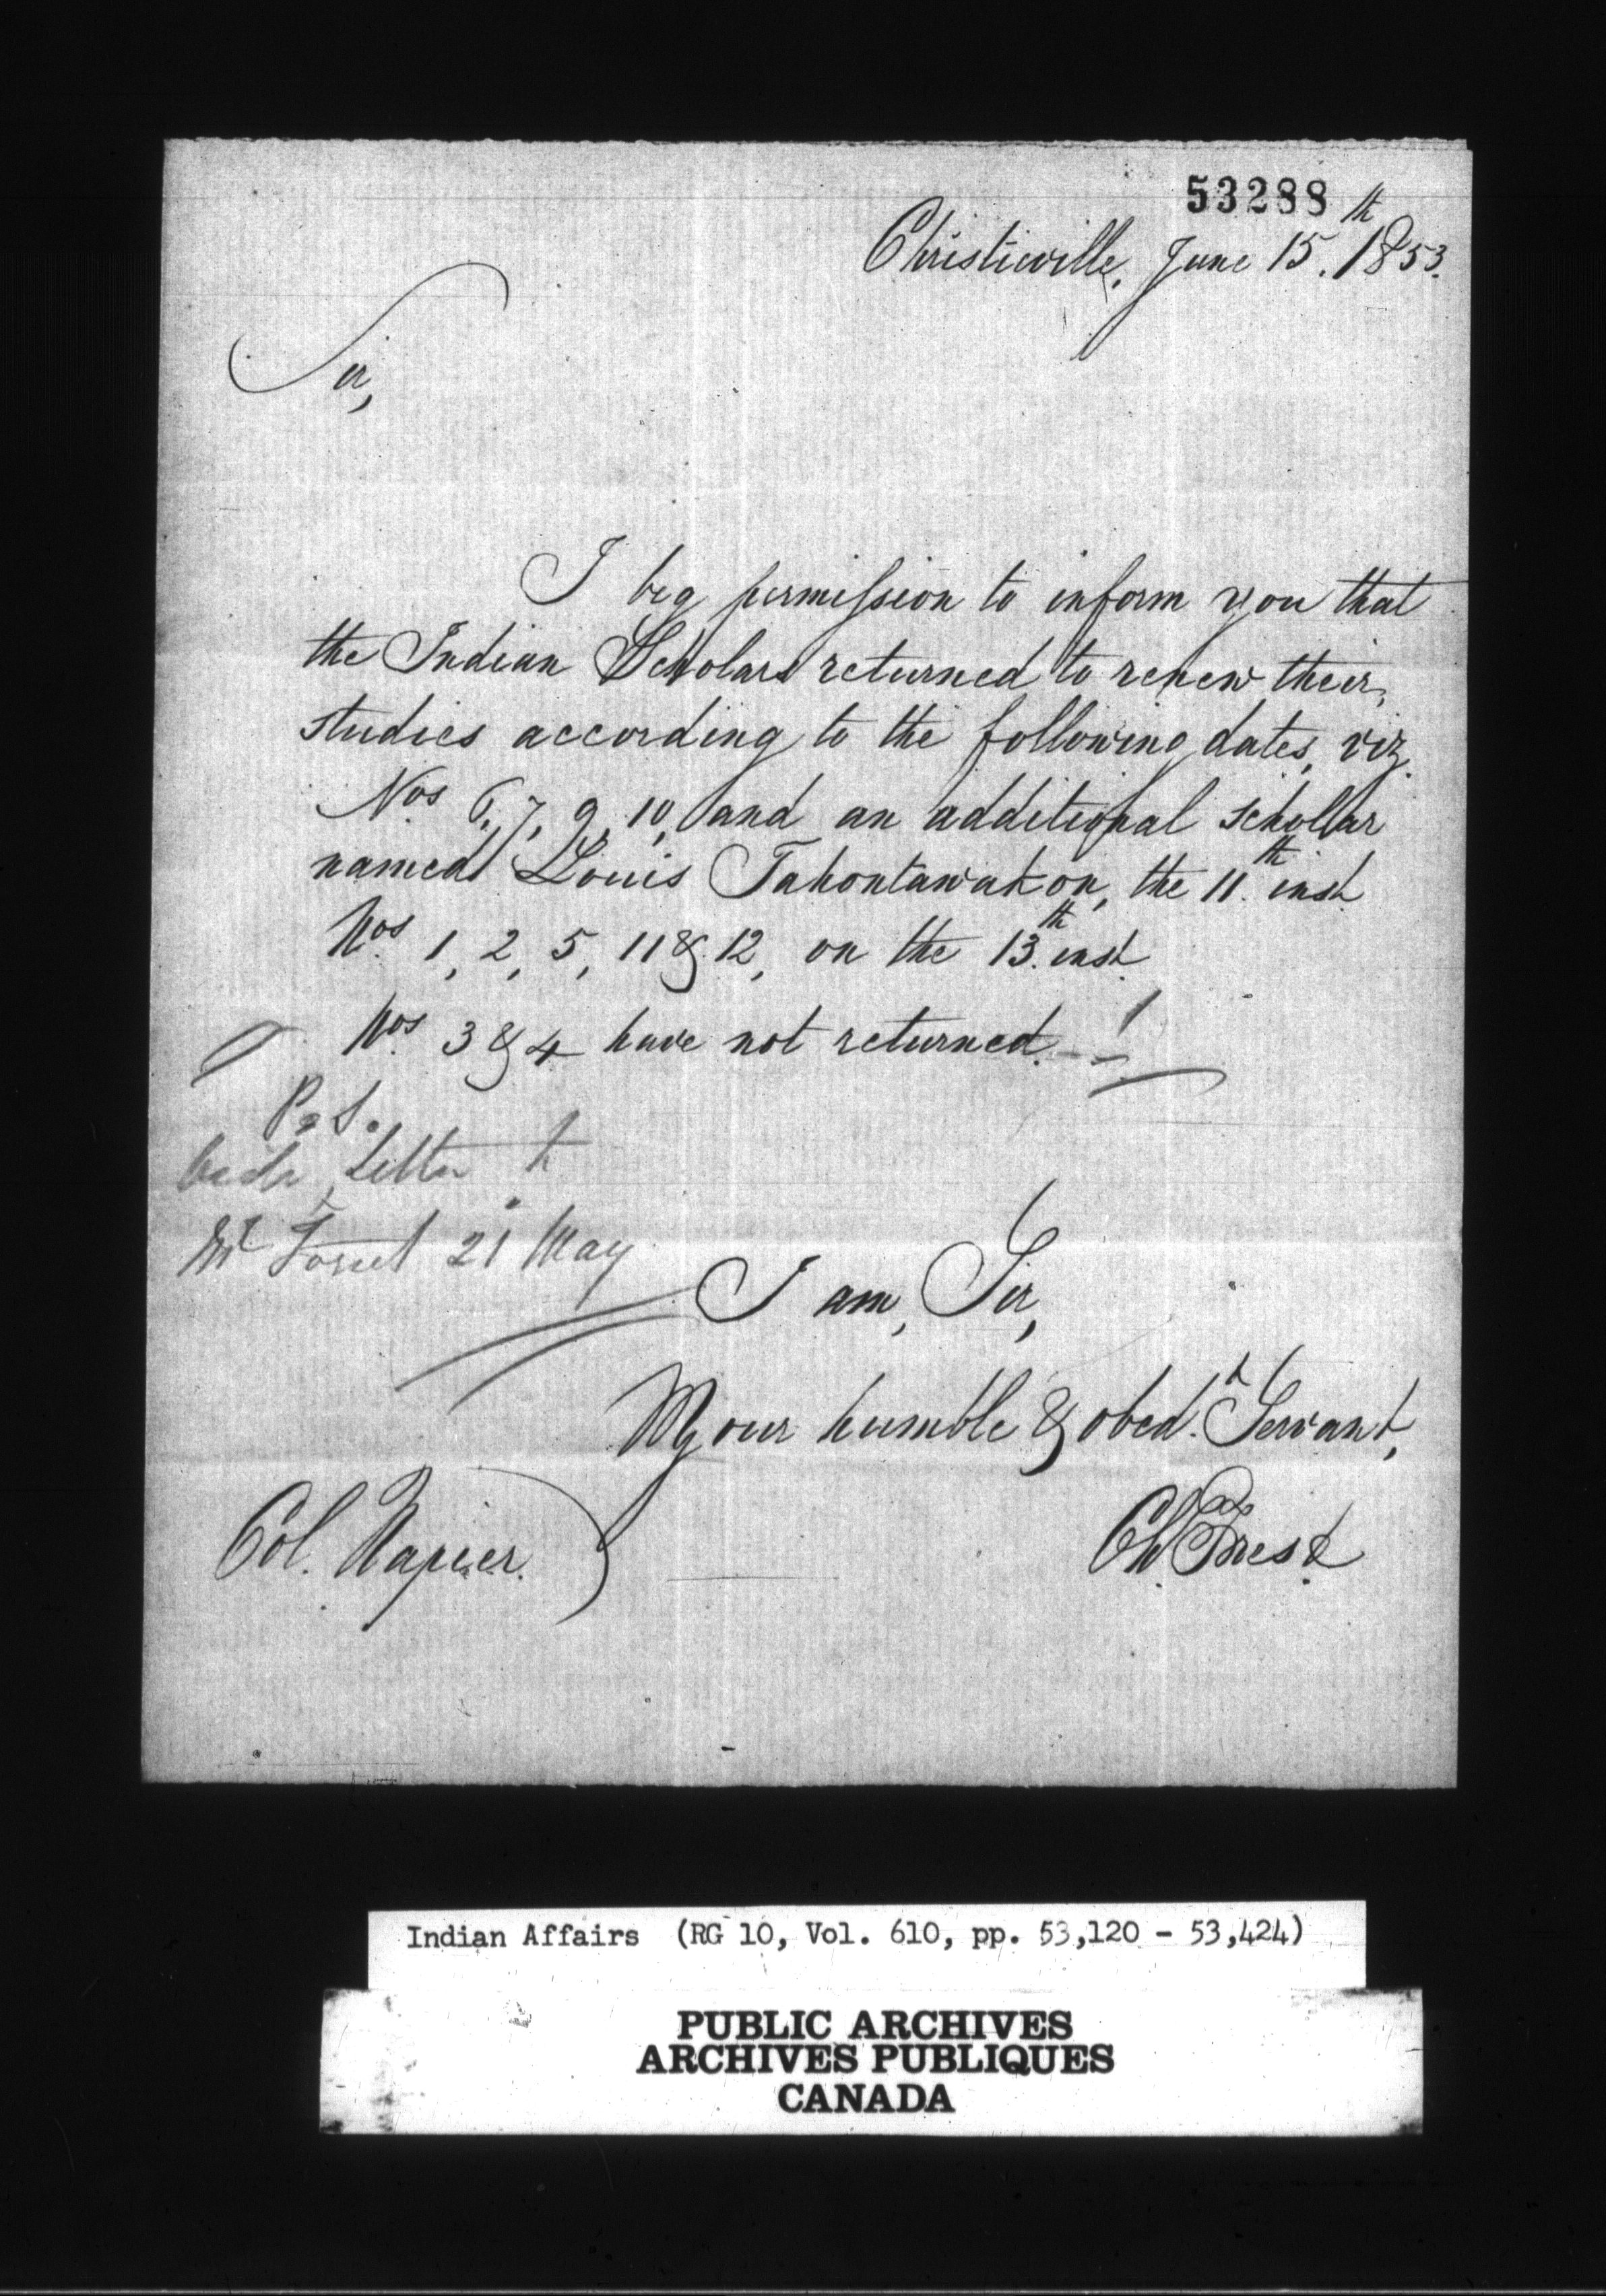 53288
Christieville, June 15th. 1853.
Sir,
I beg permission to inform you that
the Indian Scholars returned to renew their
studies according to the following dates, viz.
Nos 6, 7, 9, 10, and an additional schollar
named Louis Tahontawakon, the 11th. inst
Nos. 1, 2, 5, 11 & 12, on the 13th. inst.
Nos. 3 & 4 have not returned.
P. S.
Letter to
Mr 21 May
I am, Sir,
Your humble & obedt. Servant,
Col. Napier.
Ch. Forest
Indian Affairs (RG 10, Vol. 610, pp. 53,120 - 53,424)
PUBLIC ARCHIVES
ARCHIVES PUBLIQUES
CANADA